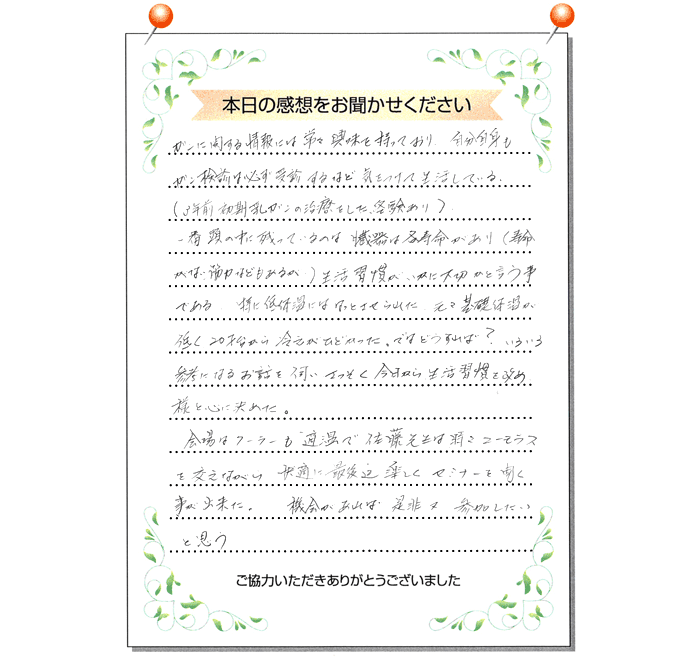 本日の感想をお聞かせください
ガンに関する情報には常々興味を持っており 自分自身も
ガン検診は必ず受診するほど気をつけて生活している。
(3年前初期乳ガンの治療をした経験あり)
一番頭の中に残っているのは臓器は各寿命があり(寿命
がない筋肉などもあるが)生活習慣がいかに大切かと言う事
である 特に低体温にはハッとさせられた 元々基礎体温が
低く20才台から冷えがひどかった、ではどうすれば?いろいろ
参考になるお話を伺いさっそく今日から生活習慣を改め
様と心に決めた。
会場はクーラーも適温で佐藤先生は時々ユーモラス
を交えながら 快適に最後迄楽しくセミナーを聞く
事が出来た。 機会があれば是非又参加したい
と思う
ご協力いただきありがとうございました